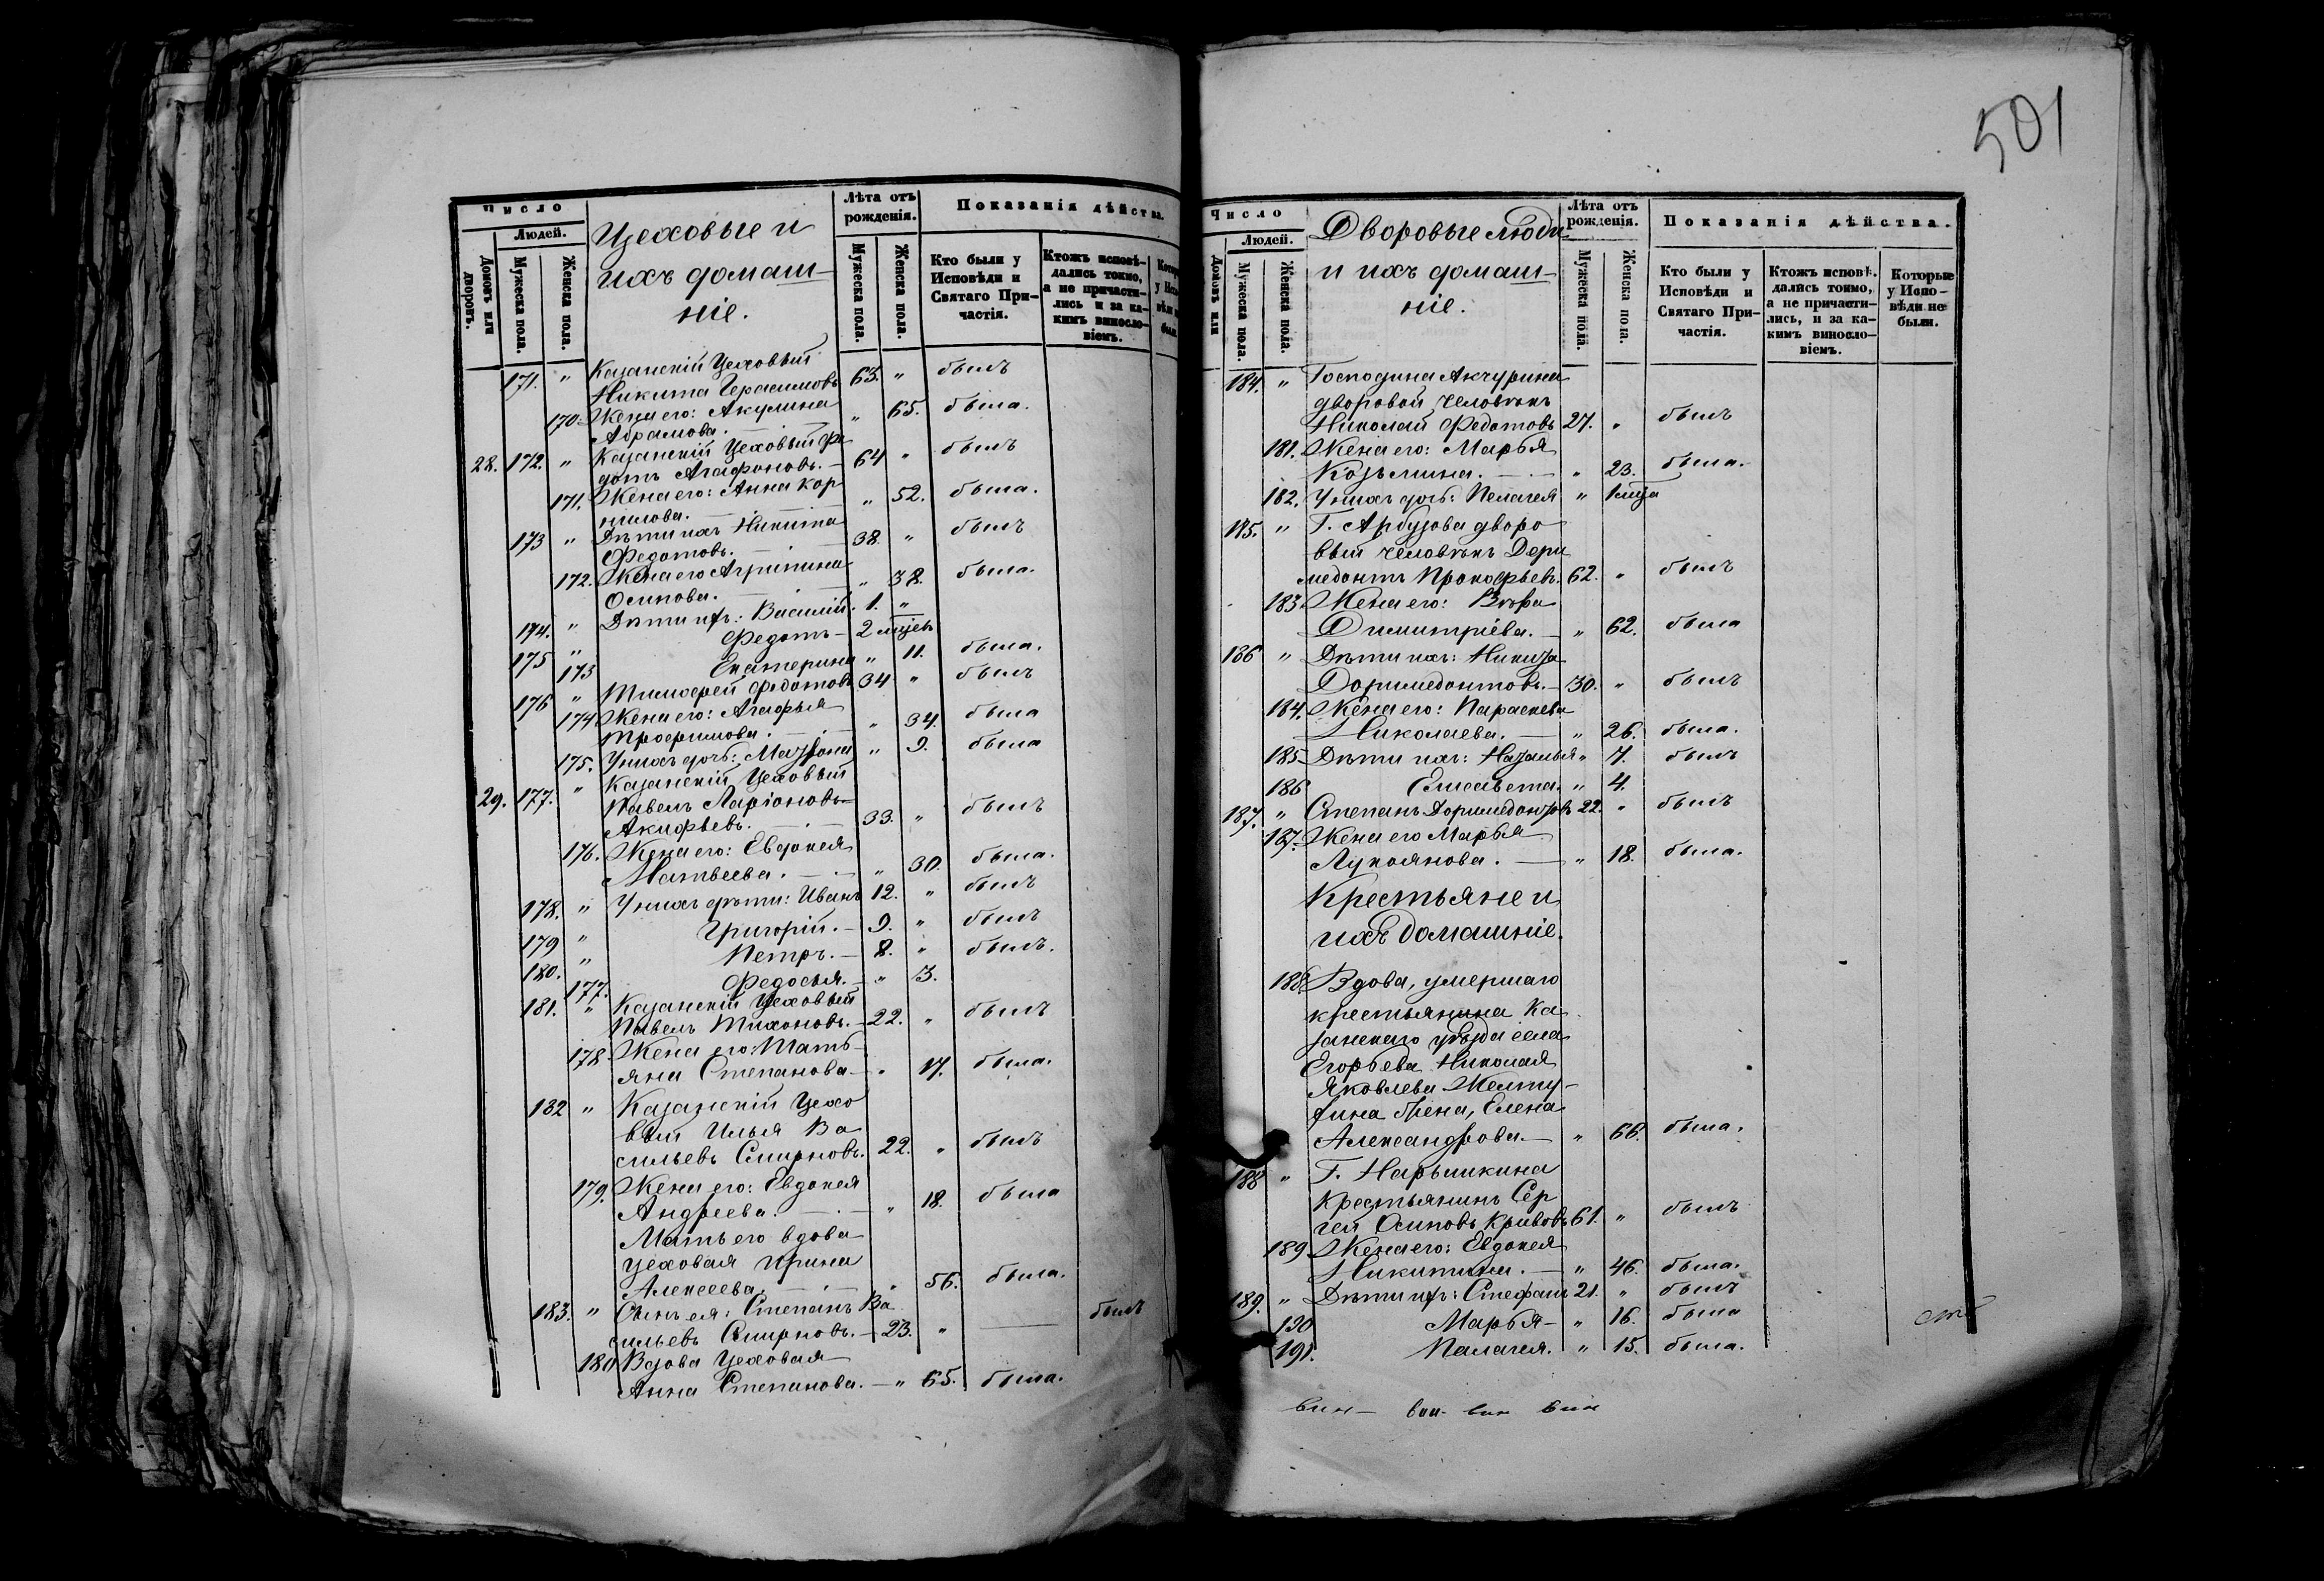 501
Число
Людей.
Домовъ или дворовъ.
Мужеска пола.
Женска пола.
Цеховые и
ихъ домаш-
ніе.
Лѣта отъ рожденія.
Мужеска пола.
Женска пола.
Показанія дѣйства.
Кто были у Исповѣди и Святаго При-частія.
Ктожъ исповѣ-дались токмо, а не причасти-лись и за ка-кимъ винсло-віемъ.
171. " Казанскій Цеховый
Никита Герасимовъ 63. " былъ
170 Жена его: Акулина
Абрамова. " 65. была.
28. 172. " Казанскій Цеховый Фе
дотъ Агафоновъ. 64 " былъ
171. Жена его: Анна Кор
нилова. " 52. была.
173 " Дѣти ихъ Никита
Федотовъ. 38. " былъ
172. Жена его Агрипина
Осипова. " 38. была.
174. " Дѣти ихъ: Василій. 1. "
175 " Федотъ - 2 мѣсец
173 Екатерина " 11. была.
176 " Тимофей Федотовъ 34 " былъ
174 Жена его: Агафья
Трофимова. " 34. была
175. У нихъ дочь: Матрона " 9. была
29. 177. " Казанскій Цеховый
Павелъ Ларіоновъ
Акифьевъ. 33. " былъ
176. Жена его: Евдокея
Матвеева. " 30. была.
178. " У нихъ дѣти: Иванъ 12. " былъ
179 " Григорій. - 9. " былъ
180. " Петръ. - 8. " былъ.
177. Федосья. - " 3.
181. " Казанскій Цеховый
Павелъ Тихоновъ. - 22. " былъ
178 Жена его: Тать-
яна Степанова - " 17. была.
182 " Казанскій Цехо
вый Илья Ва
сильевъ Смирновъ. 22. " былъ
179. Жена его: Евдокея
Андреева. " 18. была
Мать его вдова
цеховая Ирина
Алексеева. " 56. была.
183. " Сынъ ея: Степанъ Ва
сильевъ Смирновъ. - 23. " былъ
180 Вдова Цеховая
Анна Степанова. - " 65. была.
Число
Людей.
Домовъ или
Мужеска пола.
Женска пола.
Дворовые люди
и ихъ домаш-
ніе.
Лѣта отъ рожденія.
Мужеска пола.
Женска пола.
Показанія дѣйства.
Кто были у Исповѣди и Святаго При-частія.
Ктожъ исповѣ-дались токмо, а не причасти-лись, и за ка-кимъ винсло-віемъ.
Которые у Испо-вѣди не были.
184. " Господина Акчурина
дворовой человѣкъ
Николай Федотовъ 27. " былъ
181. Жена его: Марья
Козьмина. " 23. была.
182. У нихъ дочь: Пелагея "
185. " Г. Арбузова дворо
вый человѣкъ Дори
медонтъ Прокофьевъ. 62. " былъ
183. Жена его: Вѣра
Димитріева. - " 62. была
186 " Дѣти ихъ: Никита
Доримедонтовъ. - 30. " былъ
184. Жена его: Параскева
Николаева. - " 26. была.
185 Дѣти ихъ: Наталья " 7. былъ
186 Елисавета. " 4.
187. " Степанъ Доримедонтовъ 22. " былъ
187. Жена его Марья
Лукоянова. - " 18. была.
Крестьяне и
ихъ домашніе.
188 Вдова, умершаго
крестьянина Ка
занскаго уѣзда села
Егорьева Николая
Яковлева Желту-
хина жена, Елена
Александрова. - " 66. была.
188 " Г. Нарышкина
крестьянинъ Сер
гей Осиповъ Кривовъ 61. " былъ
189 Жена его: Евдокея
Никитина. - " 46. была.
189. " Дѣти ихъ: Стефанъ 21. " былъ
190 Марья - " 16. была
191. Палагея. " 15. была.